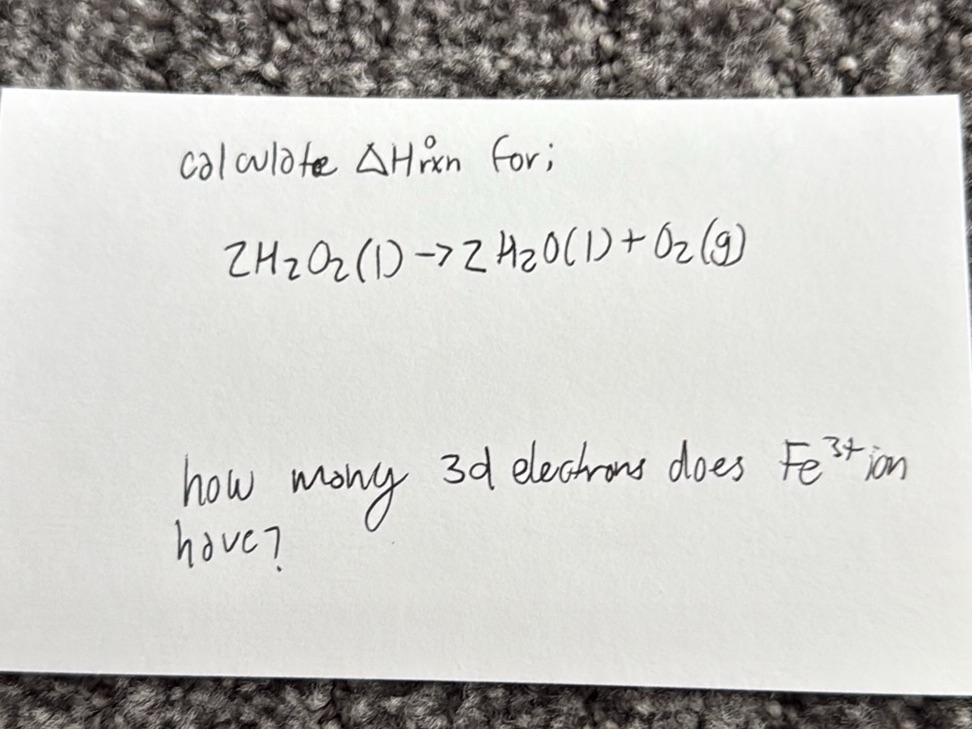 calculate ΔH°rxn for;
2H₂O₂(l) -> 2H₂O(l) + O₂(g)
how many 3d electrons does Fe³⁺ ion
have?